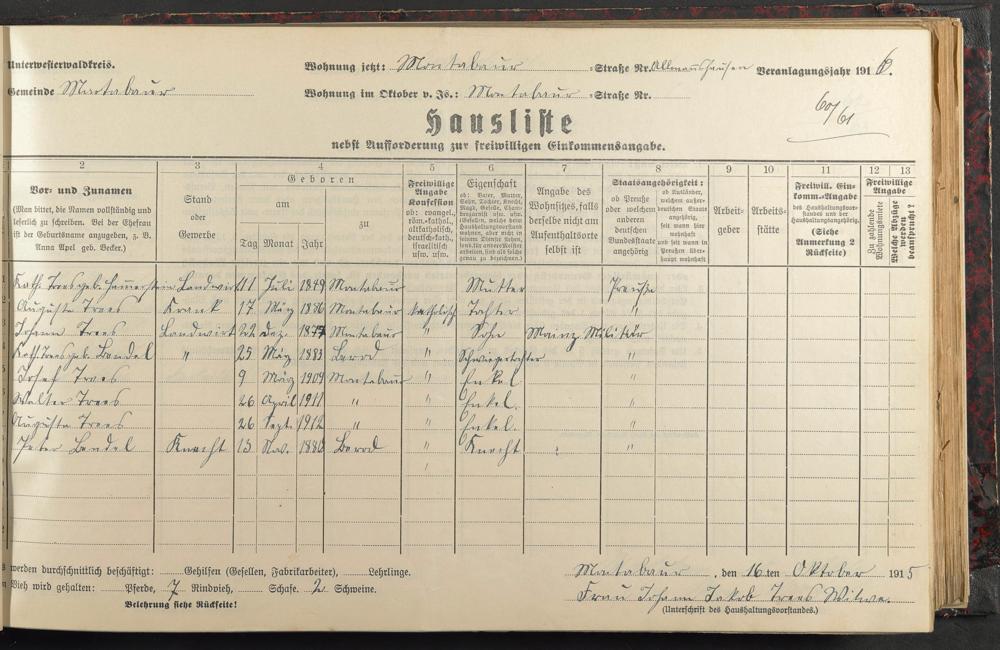 Unterwesterwaldkreis. Wohnung jetzt: Montabaur =Straße Nr. Allmannshausen Veranlagungsjahr 1916.
Gemeinde Montabaur Wohnung im Oktober v. Js.: Montabaur =Straße Nr.
60/61
Hausliste
nebst Aufforderung zur freiwilligen Einkommensangabe.
2 3 4 5 6 7 8 9 10 11 12 13
Vor= und Zunamen
(Man bittet, die Namen vollständig und
leserlich zu schreiben. Bei der Ehefrau
ist der Geburtsname anzugeben, z. B.
Anna Apel geb. Becker.)
Stand
oder
Gewerbe
Geboren
am
Tag Monat Jahr
zu
Freiwillige
Angabe
Konfession
ob: evangel.,
röm.=kathol.,
altkatholisch,
deutsch=kath.,
israelitisch
usw. usw.
Eigenschaft
ob: Vater, Mutter,
Sohn, Tochter, Knecht,
Magd, Geselle,
Angabe des
Wohnsitzes, falls
derselbe nicht am
Aufenthaltsorte
selbst ist
Staatsangehörigkeit:
ob Preuße
oder welchem
anderen
deutschen
Bundesstaate
angehörig
ob Ausländer,
welchem außer=
deutschen Staate
angehörig,
seit wann hier
wohnhaft
und seit wann in
Preußen über=
haupt wohnhaft
Arbeit=
geber
Arbeits=
stätte
Freiwill. Ein=
komm.=Angabe
des Haushaltungsvor=
standes und der
Haushaltungsangehörig.
(Siehe
Anmerkung 2
Rückseite)
Freiwillige
Angabe
Zu zahlende
Wohnungsmiete
Welche Abzüge
werden
beansprucht?
Kath. Trees geb. Hammerstein Landwirt 11 Juli 1849 Montabaur Mutter Preuße
Augusta Trees Krank 17 März 1886 Montabaur katholisch Tochter "
Johann Trees Landwirt 22 Dez. 1877 Montabaur " Sohn Mainz Militär
Kath. Trees geb. Bendel " 25 März 1883 Berod " Schwiegertochter "
Josef Trees 9 März 1909 Montabaur " Enkel "
Walter Trees 26 April 1911 " " Enkel. "
Augusta Trees 26 Sept. 1912 " " Enkel. "
Peter Bendel Knecht 15 Nov. 1886 Berod " Knecht "
werden durchschnittlich beschäftigt: Gehilfen (Gesellen, Fabrikarbeiter), Lehrlinge.
Vieh wird gehalten: Pferde, 7 Rindvieh, Schafe. 2 Schweine.
Belehrung siehe Rückseite!
Montabaur, den 16 ten Oktober 1915
Frau Johann Jakob Trees Witwe.
(Unterschrift des Haushaltungsvorstandes.)